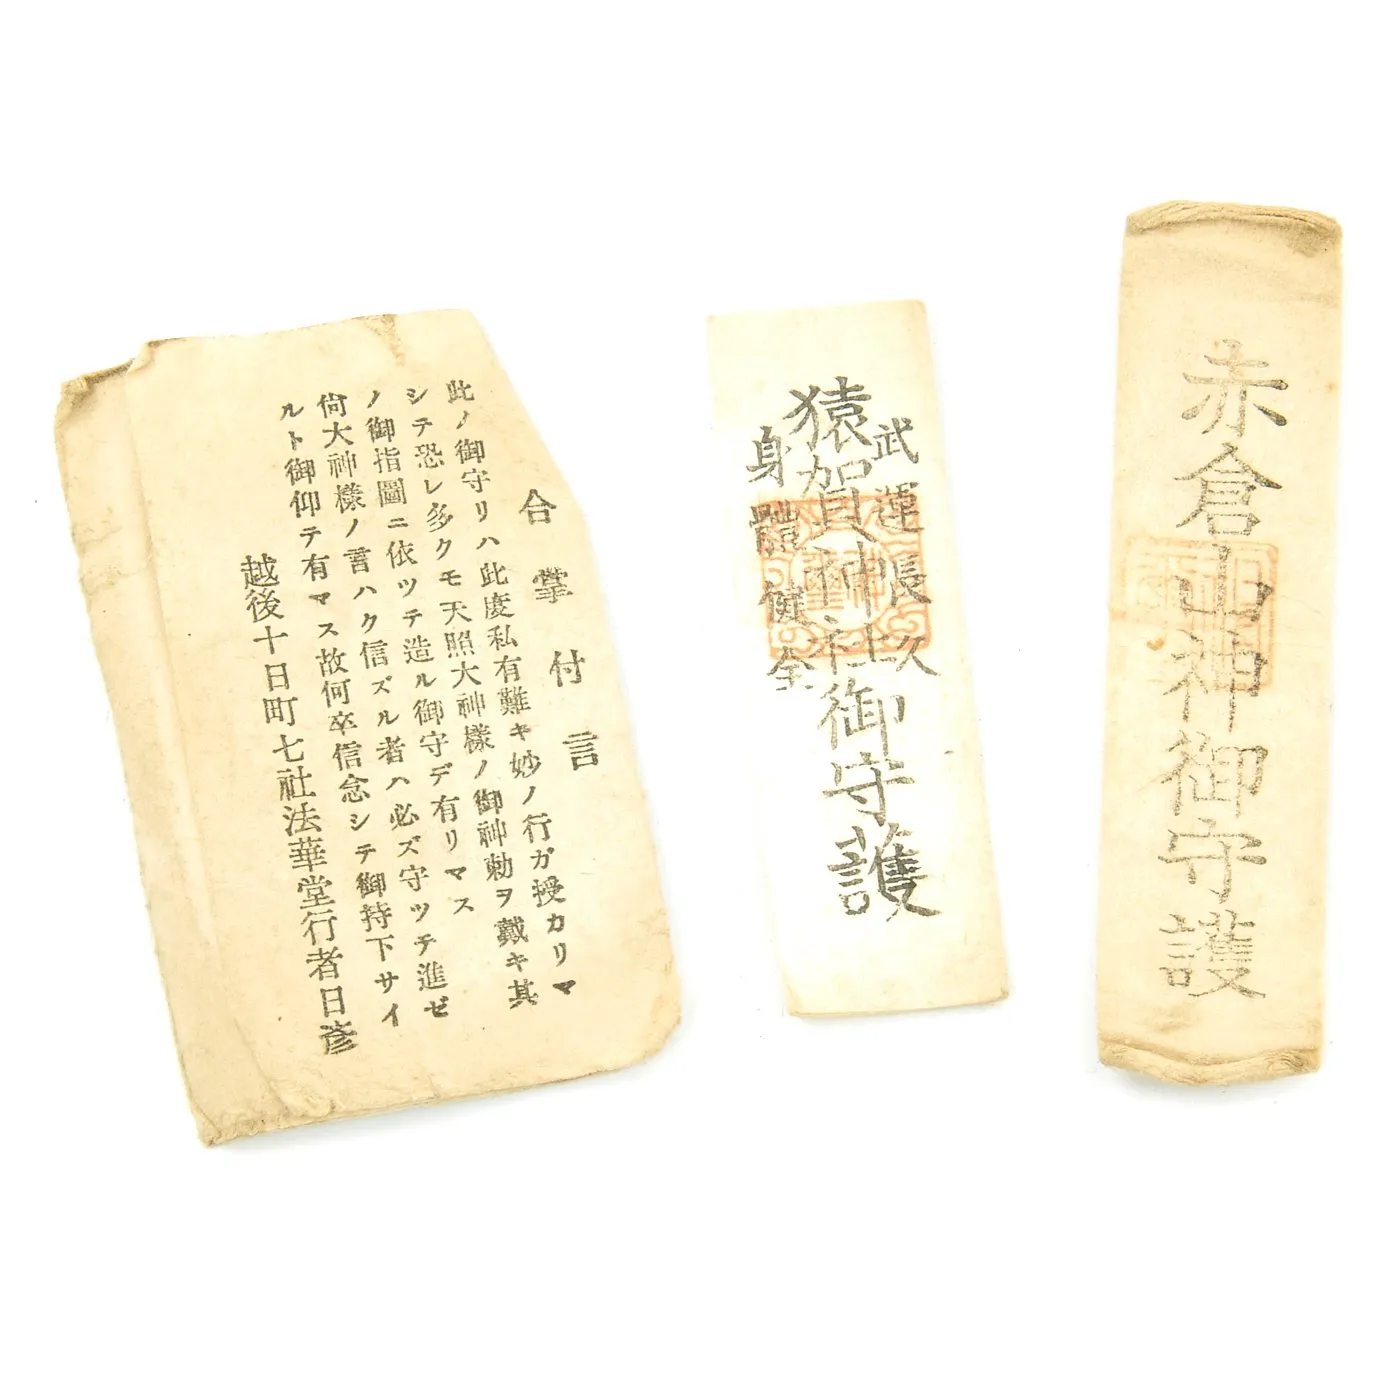 合掌付言
此ノ御守リハ此慶私有難キ妙ノ行ガ授カリマ
シテ恐レ多クモ天照大神様ノ御神勅ヲ戴キ其
ノ御指圖ニ依ツテ造ル御守デ有リマス
尙大神様ノ言ハク信ズル者ハ必ズ守ツテ進ゼ
ルト御仰テ有マス故何卒信念シテ御持下サイ
越後十日町七社法華堂行者日彦
武運長久
猿賀神社御守護
身體健全
赤倉山神御守護